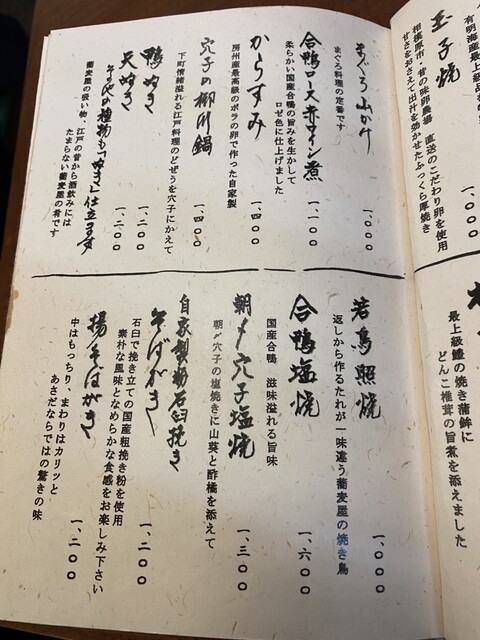 玉子焼
有明海産最上級品
相模原市・昔の味卵農場 直送のこだわり卵を使用
甘さをおさえて出汁を効かせたふっくら厚焼き
一、〇〇〇
最上級鱧の焼き蒲鉾に
どんこ椎茸の旨煮を添えました
まぐろ山かけ
まぐろ料理の定番です
一、〇〇〇
合鴨ロース赤ワイン煮
柔らかい国産合鴨の旨みを生かして
ロゼ色に仕上げました
一、一〇〇
からすみ
房州産最高級のボラの卵で作った自家製
一、四〇〇
穴子の柳川鍋
下町情緒溢れる江戸料理のどぜうを穴子にかえて
一、四〇〇
鴨ぬき
一、二〇〇
天ぬき
一、二〇〇
その他の種物も「ぬき」に仕立てます
蕎麦屋の吸い物、江戸の昔から酒飲みには
たまらない蕎麦屋の肴です
若鳥照焼
返しから作るたれが一味違う蕎麦屋の焼き鳥
一、〇〇〇
合鴨塩焼
国産合鴨 滋味溢れる旨味
一、六〇〇
朝〆穴子塩焼
朝〆穴子の塩焼きに山葵と酢橘を添えて
一、三〇〇
自家製粉石臼挽き
そばがき
石臼で挽き立ての国産粗挽き粉を使用
素朴な風味となめらかな食感をお楽しみ下さい
一、二〇〇
揚そばがき
中はもっちり、まわりはカリッと
あさだならではの驚きの味
一、二〇〇